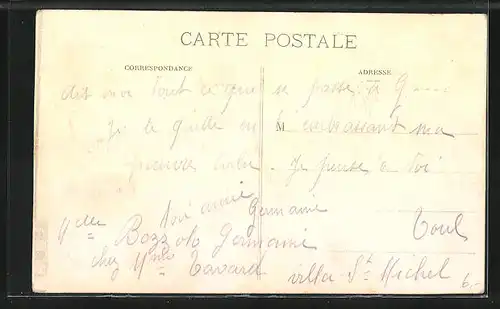 CARTE POSTALE
CORRESPONDANCE
ADRESSE
dis moi tout ce que se passe à G....
Je te quitte en t'embrassant ma
M
pauvre . Je pense à toi
Ton amie
Germaine
Mlle Bozzolo Germaine Toul
chez Mme Tavard villa St Michel
6.-